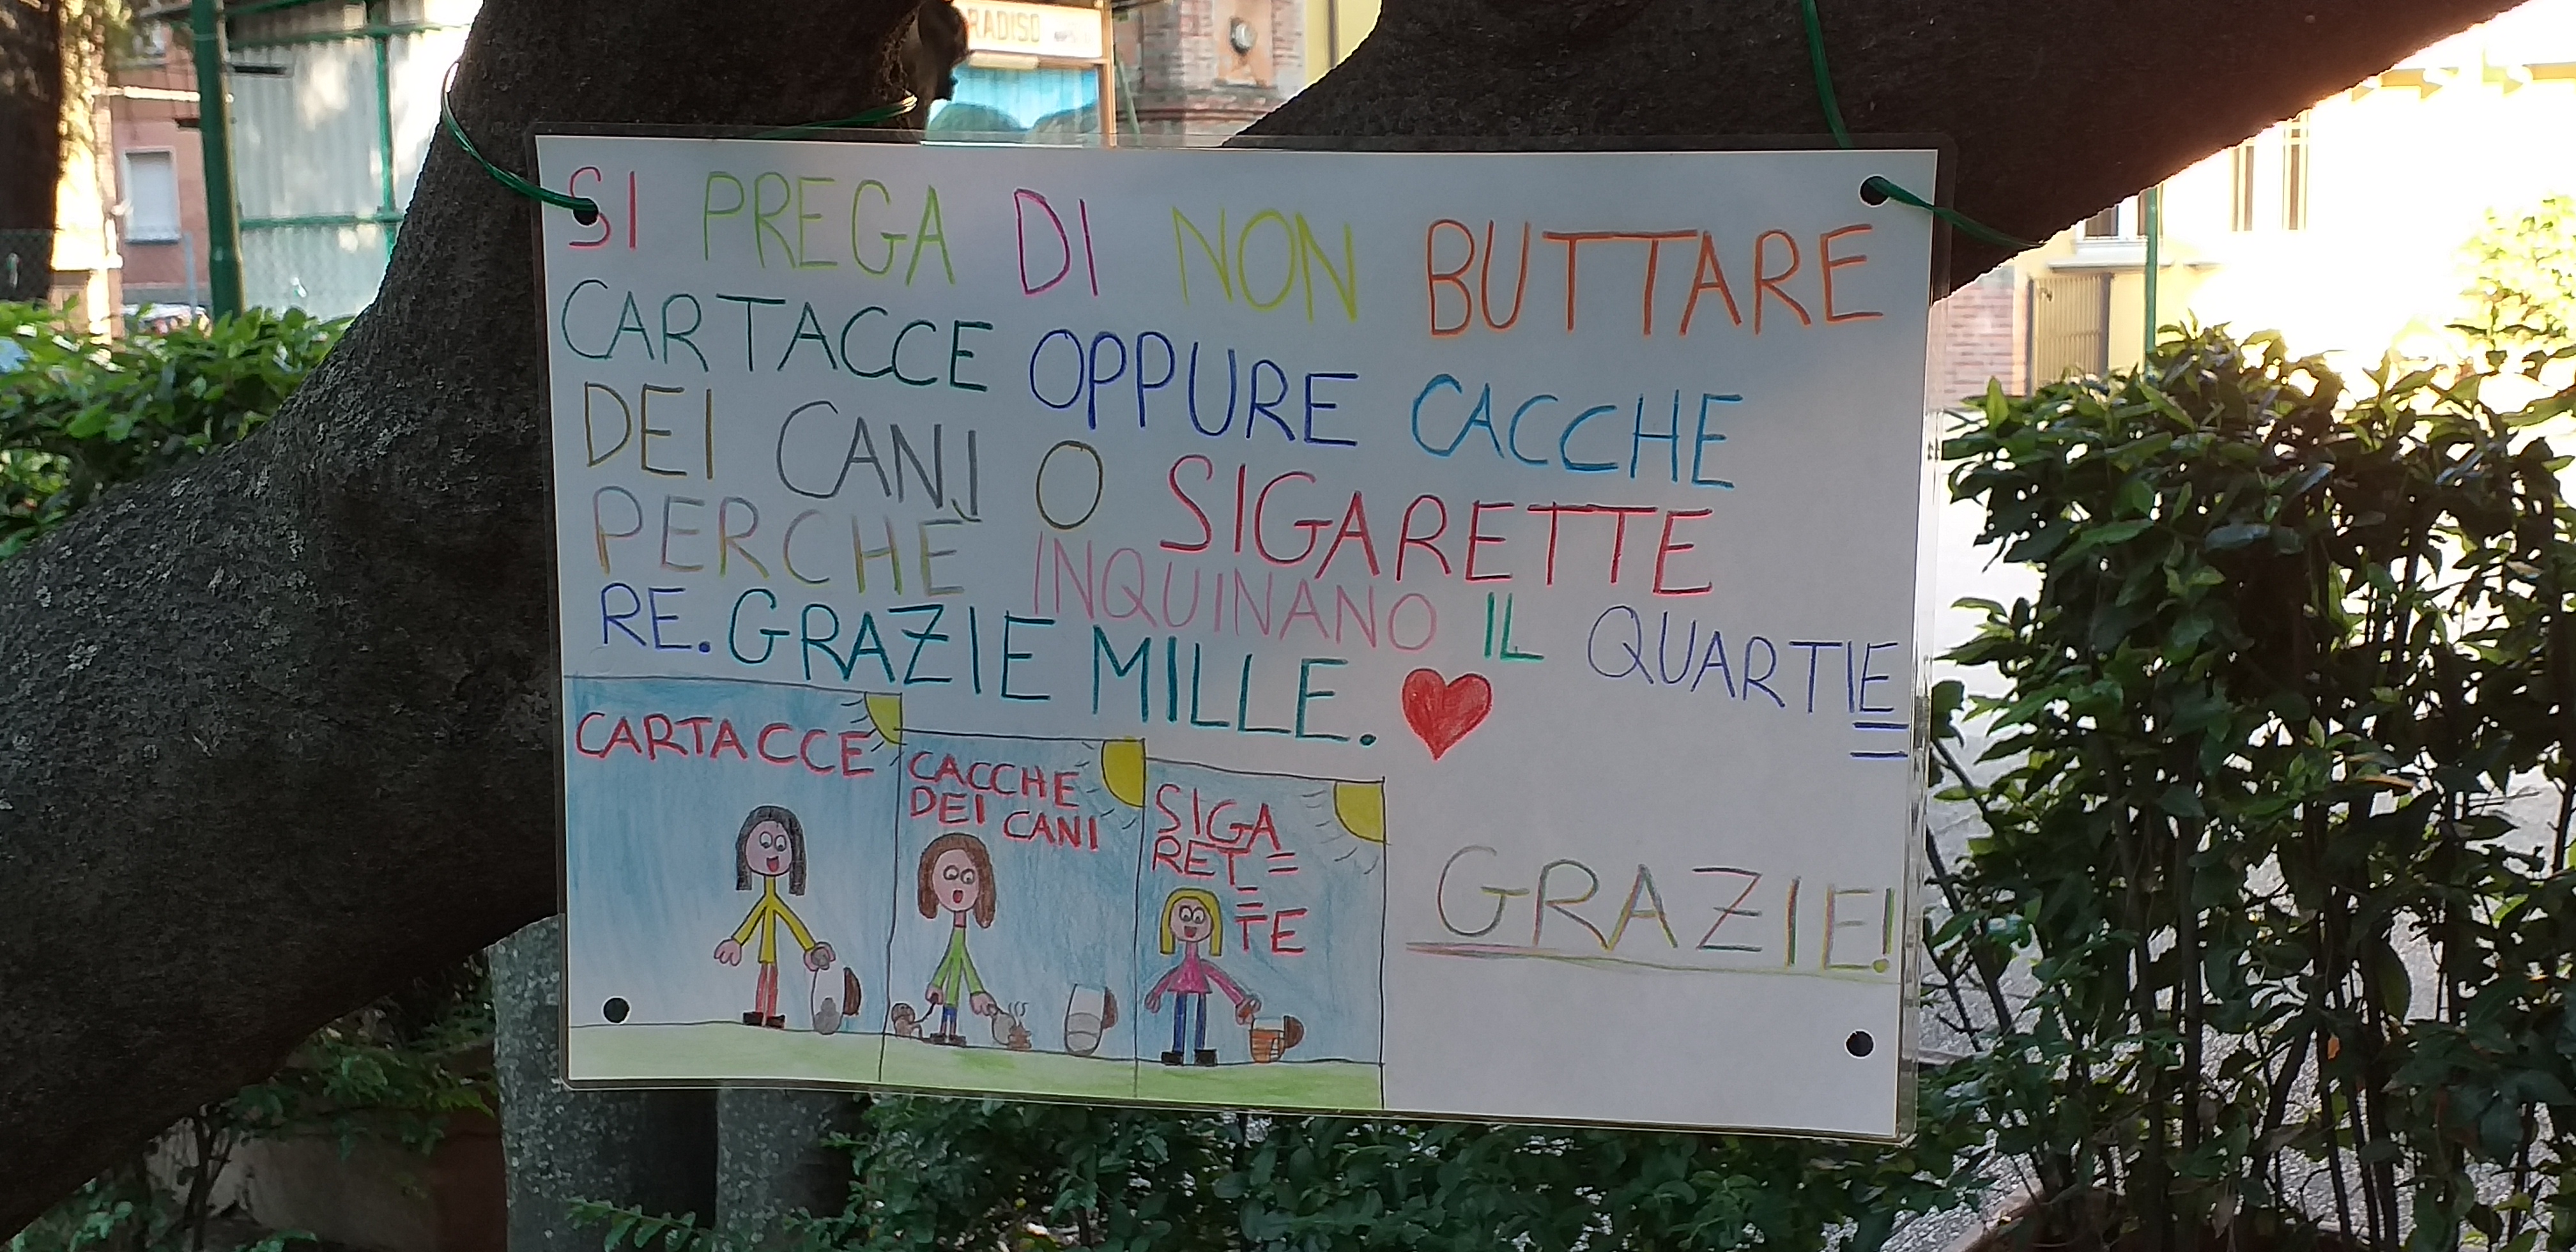 RADISO
SI PREGA DI NON BUTTARE
CARTACCE OPPURE CACCHE
DEI CANI O SIGARETTE
PERCHÈ INQUINANO IL QUARTIE=
RE. GRAZIE MILLE.
CARTACCE
CACCHE
DEI CANI
SIGA
RET=
=TE
GRAZIE!